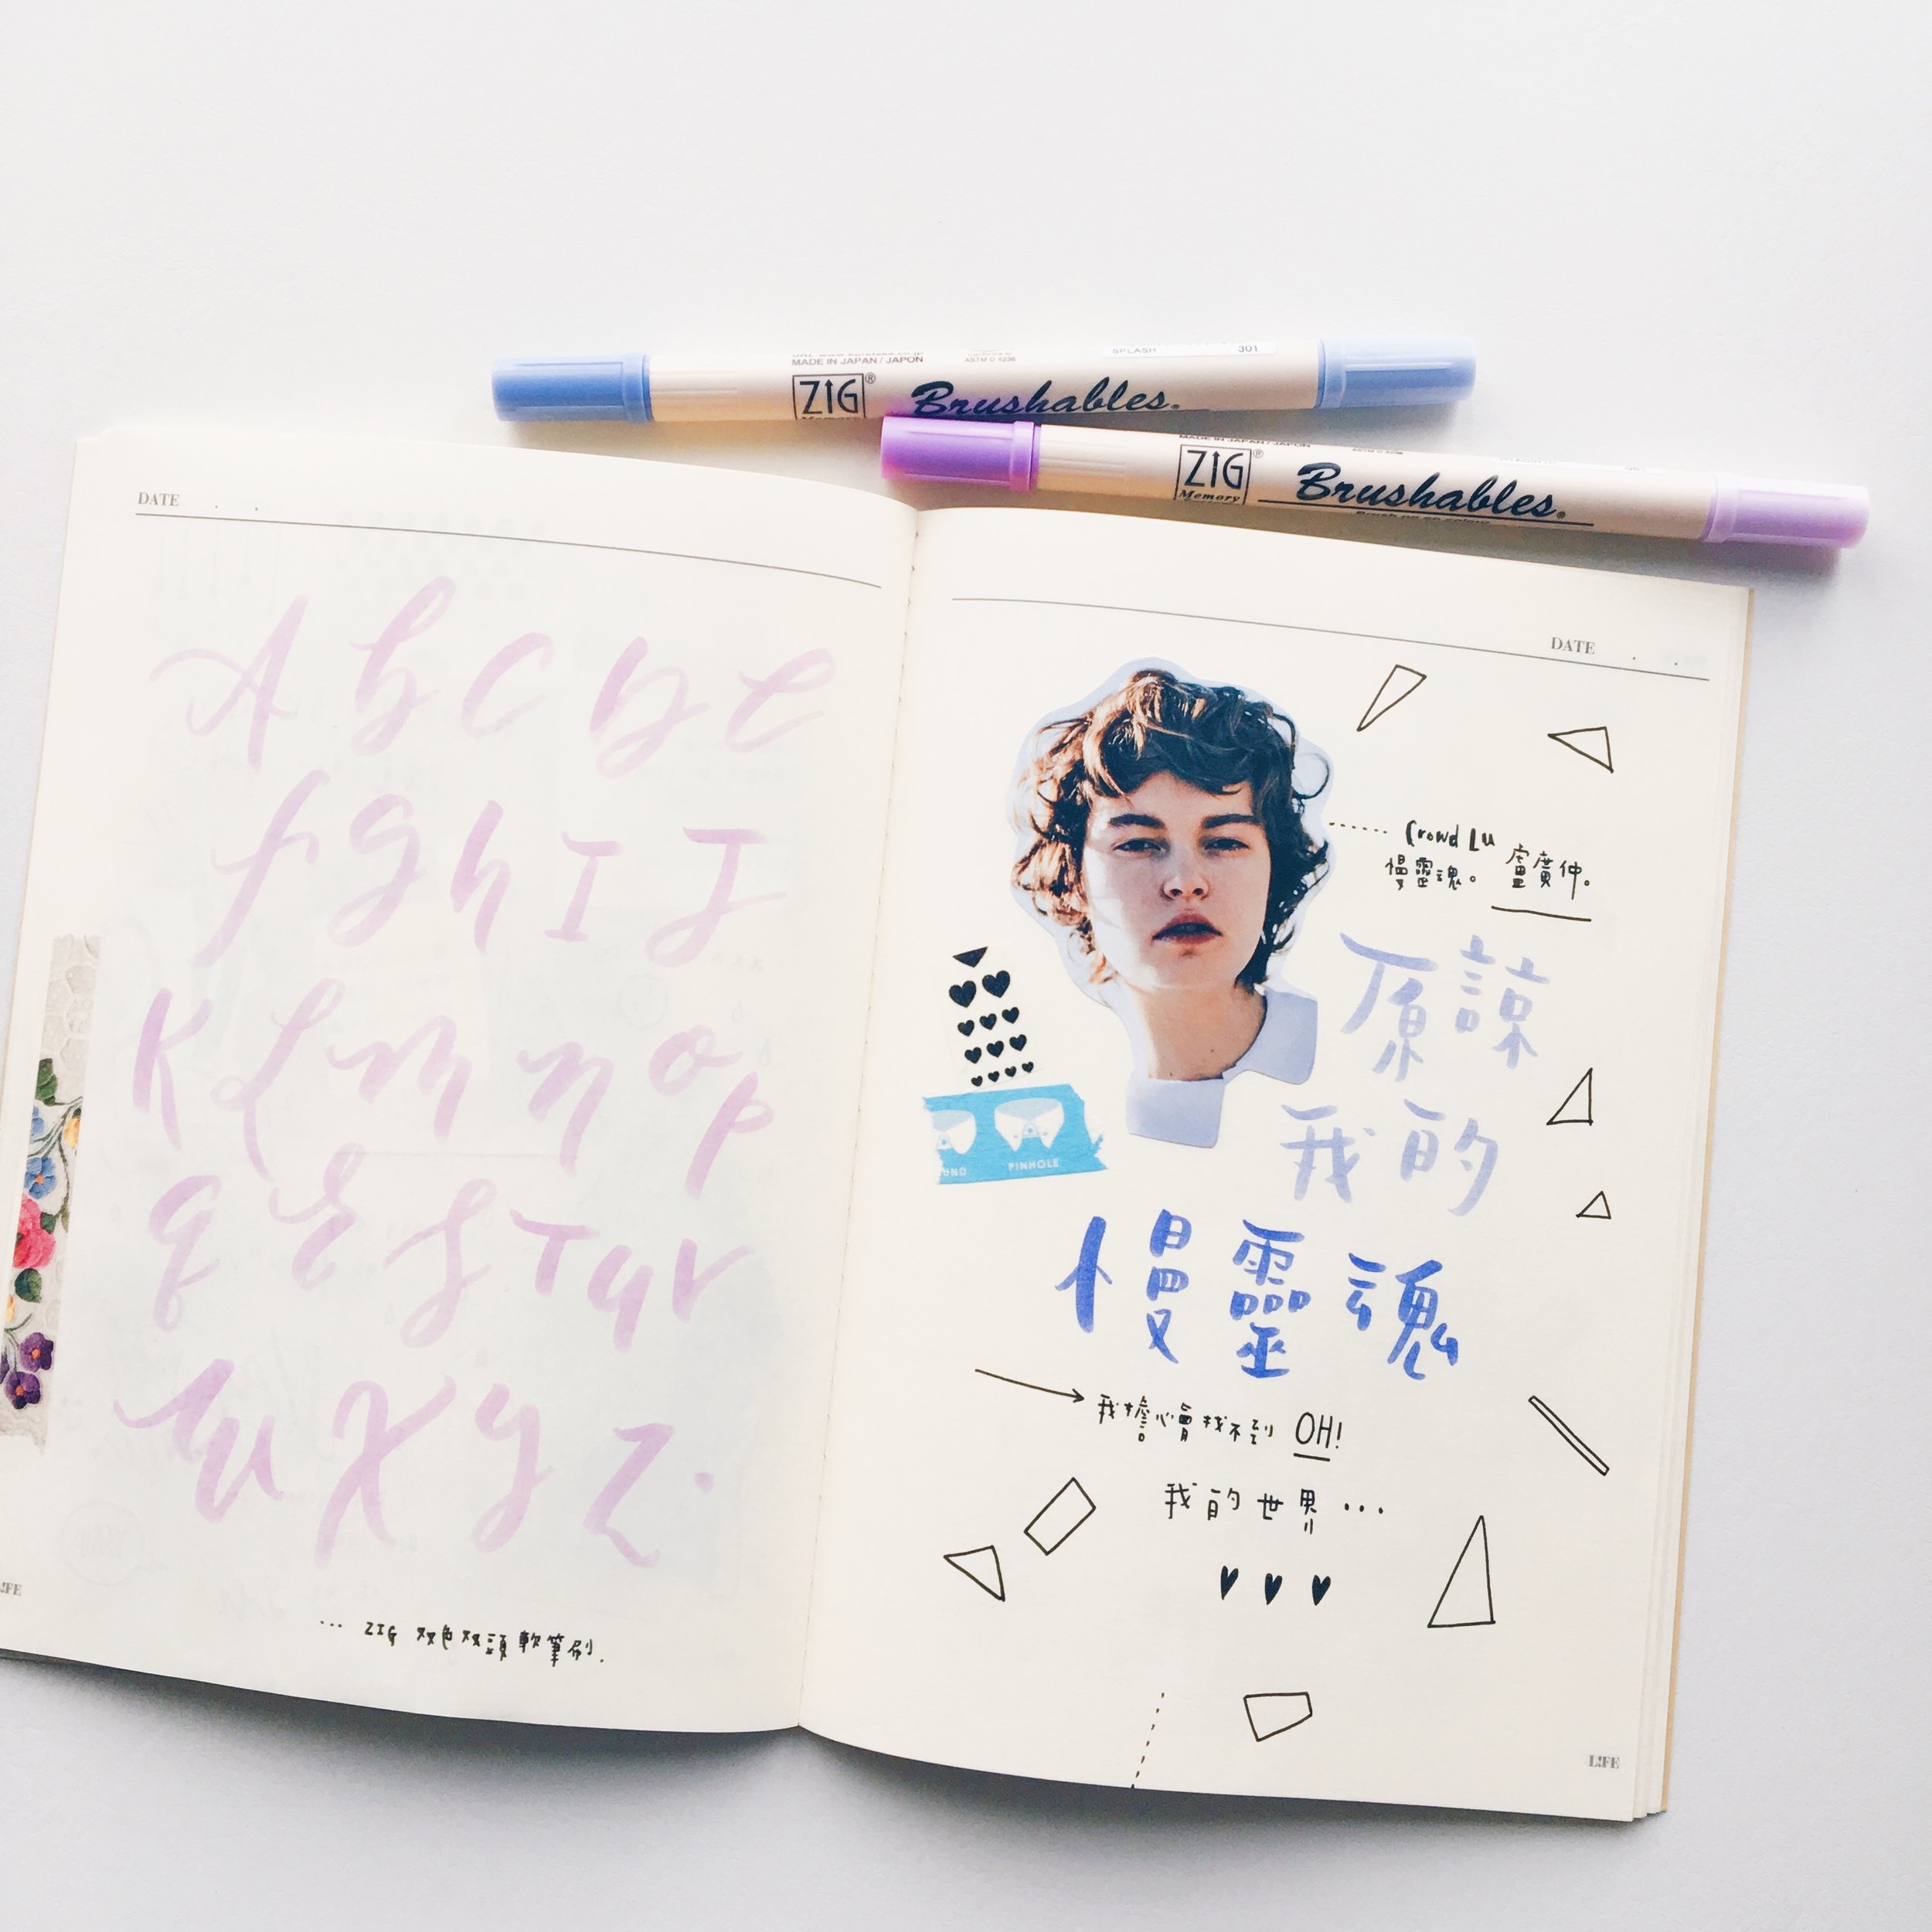 MADE IN JAPAN / JAPON
ASTM D 4236
SPLASH 301
ZIG® Brushables®
MADE IN JAPAN / JAPON
ZIG® Brushables®
Memory
DATE . .
A b C D E
f g h I J
K L m n o p
q R S T u V
W X Y Z .
... ZIG 双色双頭軟筆刷.
LIFE
DATE . .
Crowd Lu
慢靈魂。盧廣仲。
原諒
我的
PINHOLE
慢靈魂
我擔心會找不到 OH!
我的世界...
LIFE